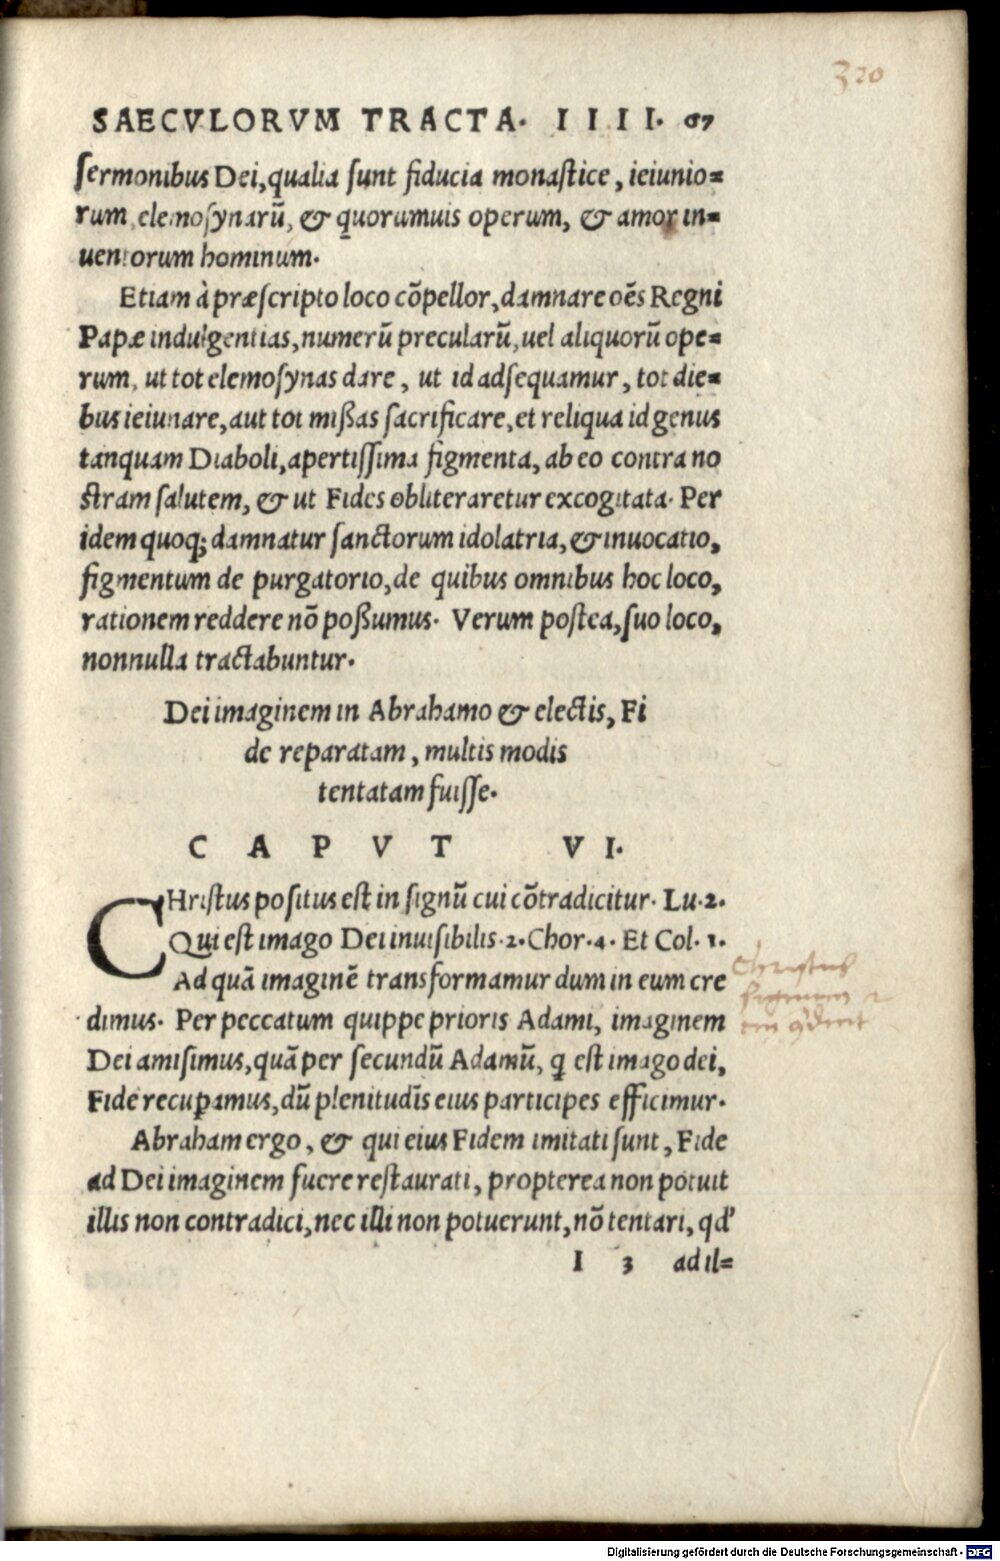 320
SAECVLORVM TRACTA. IIII. 67
sermonibus Dei, qualia sunt fiducia monastice, ieiunio=
rum, elemosynarũ, & quorumuis operum, & amor in=
uentorum hominum.
Etiam à præscripto loco cõpellor, damnare oẽs Regni
Papæ indulgentias, numerũ precularũ, uel aliquorũ ope=
rum, ut tot elemosynas dare, ut id adsequamur, tot die=
bus ieiunare, aut tot mißas sacrificare, et reliqua id genus
tanquam Diaboli, apertissima figmenta, ab eo contra no
stram salutem, & ut Fides obliteraretur excogitata. Per
idem quoq; damnatur sanctorum idolatria, & inuocatio,
figmentum de purgatorio, de quibus omnibus hoc loco,
rationem reddere nõ poßumus. Verum postea, suo loco,
nonnulla tractabuntur.
Dei imaginem in Abrahamo & electis, Fi
de reparatam, multis modis
tentatam fuisse.
CAPVT VI.
CHristus positus est in signũ cui cõtradicitur. Lu.2.
Qui est imago Dei inuisibilis.2.Chor.4. Et Col.1.
Ad quã imaginẽ transformamur dum in eum cre
dimus. Per peccatum quippe prioris Adami, imaginem
Dei amisimus, quã per secundũ Adamũ, q̃ est imago dei,
Fide recuꝑamus, dũ plenitudĩs eius participes efficimur.
Abraham ergo, & qui eius Fidem imitati sunt, Fide
ad Dei imaginem fuere restaurati, propterea non potuit
illis non contradici, nec illi non potuerunt, nõ tentari, qd'
I 3 ad il=
Christus
signum